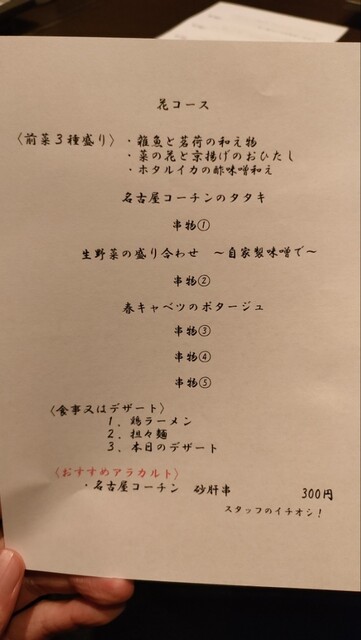 花コース
〈前菜３種盛り〉・雑魚と茗荷の和え物
・菜の花と京揚げのおひたし
・ホタルイカの酢味噌和え
名古屋コーチンのタタキ
串物①
生野菜の盛り合わせ　～自家製味噌で～
串物②
春キャベツのポタージュ
串物③
串物④
串物⑤
〈食事又はデザート〉
１．鶏ラーメン
２．担々麺
３．本日のデザート
〈おすすめアラカルト〉
・名古屋コーチン　砂肝串　300円
スタッフのイチオシ！